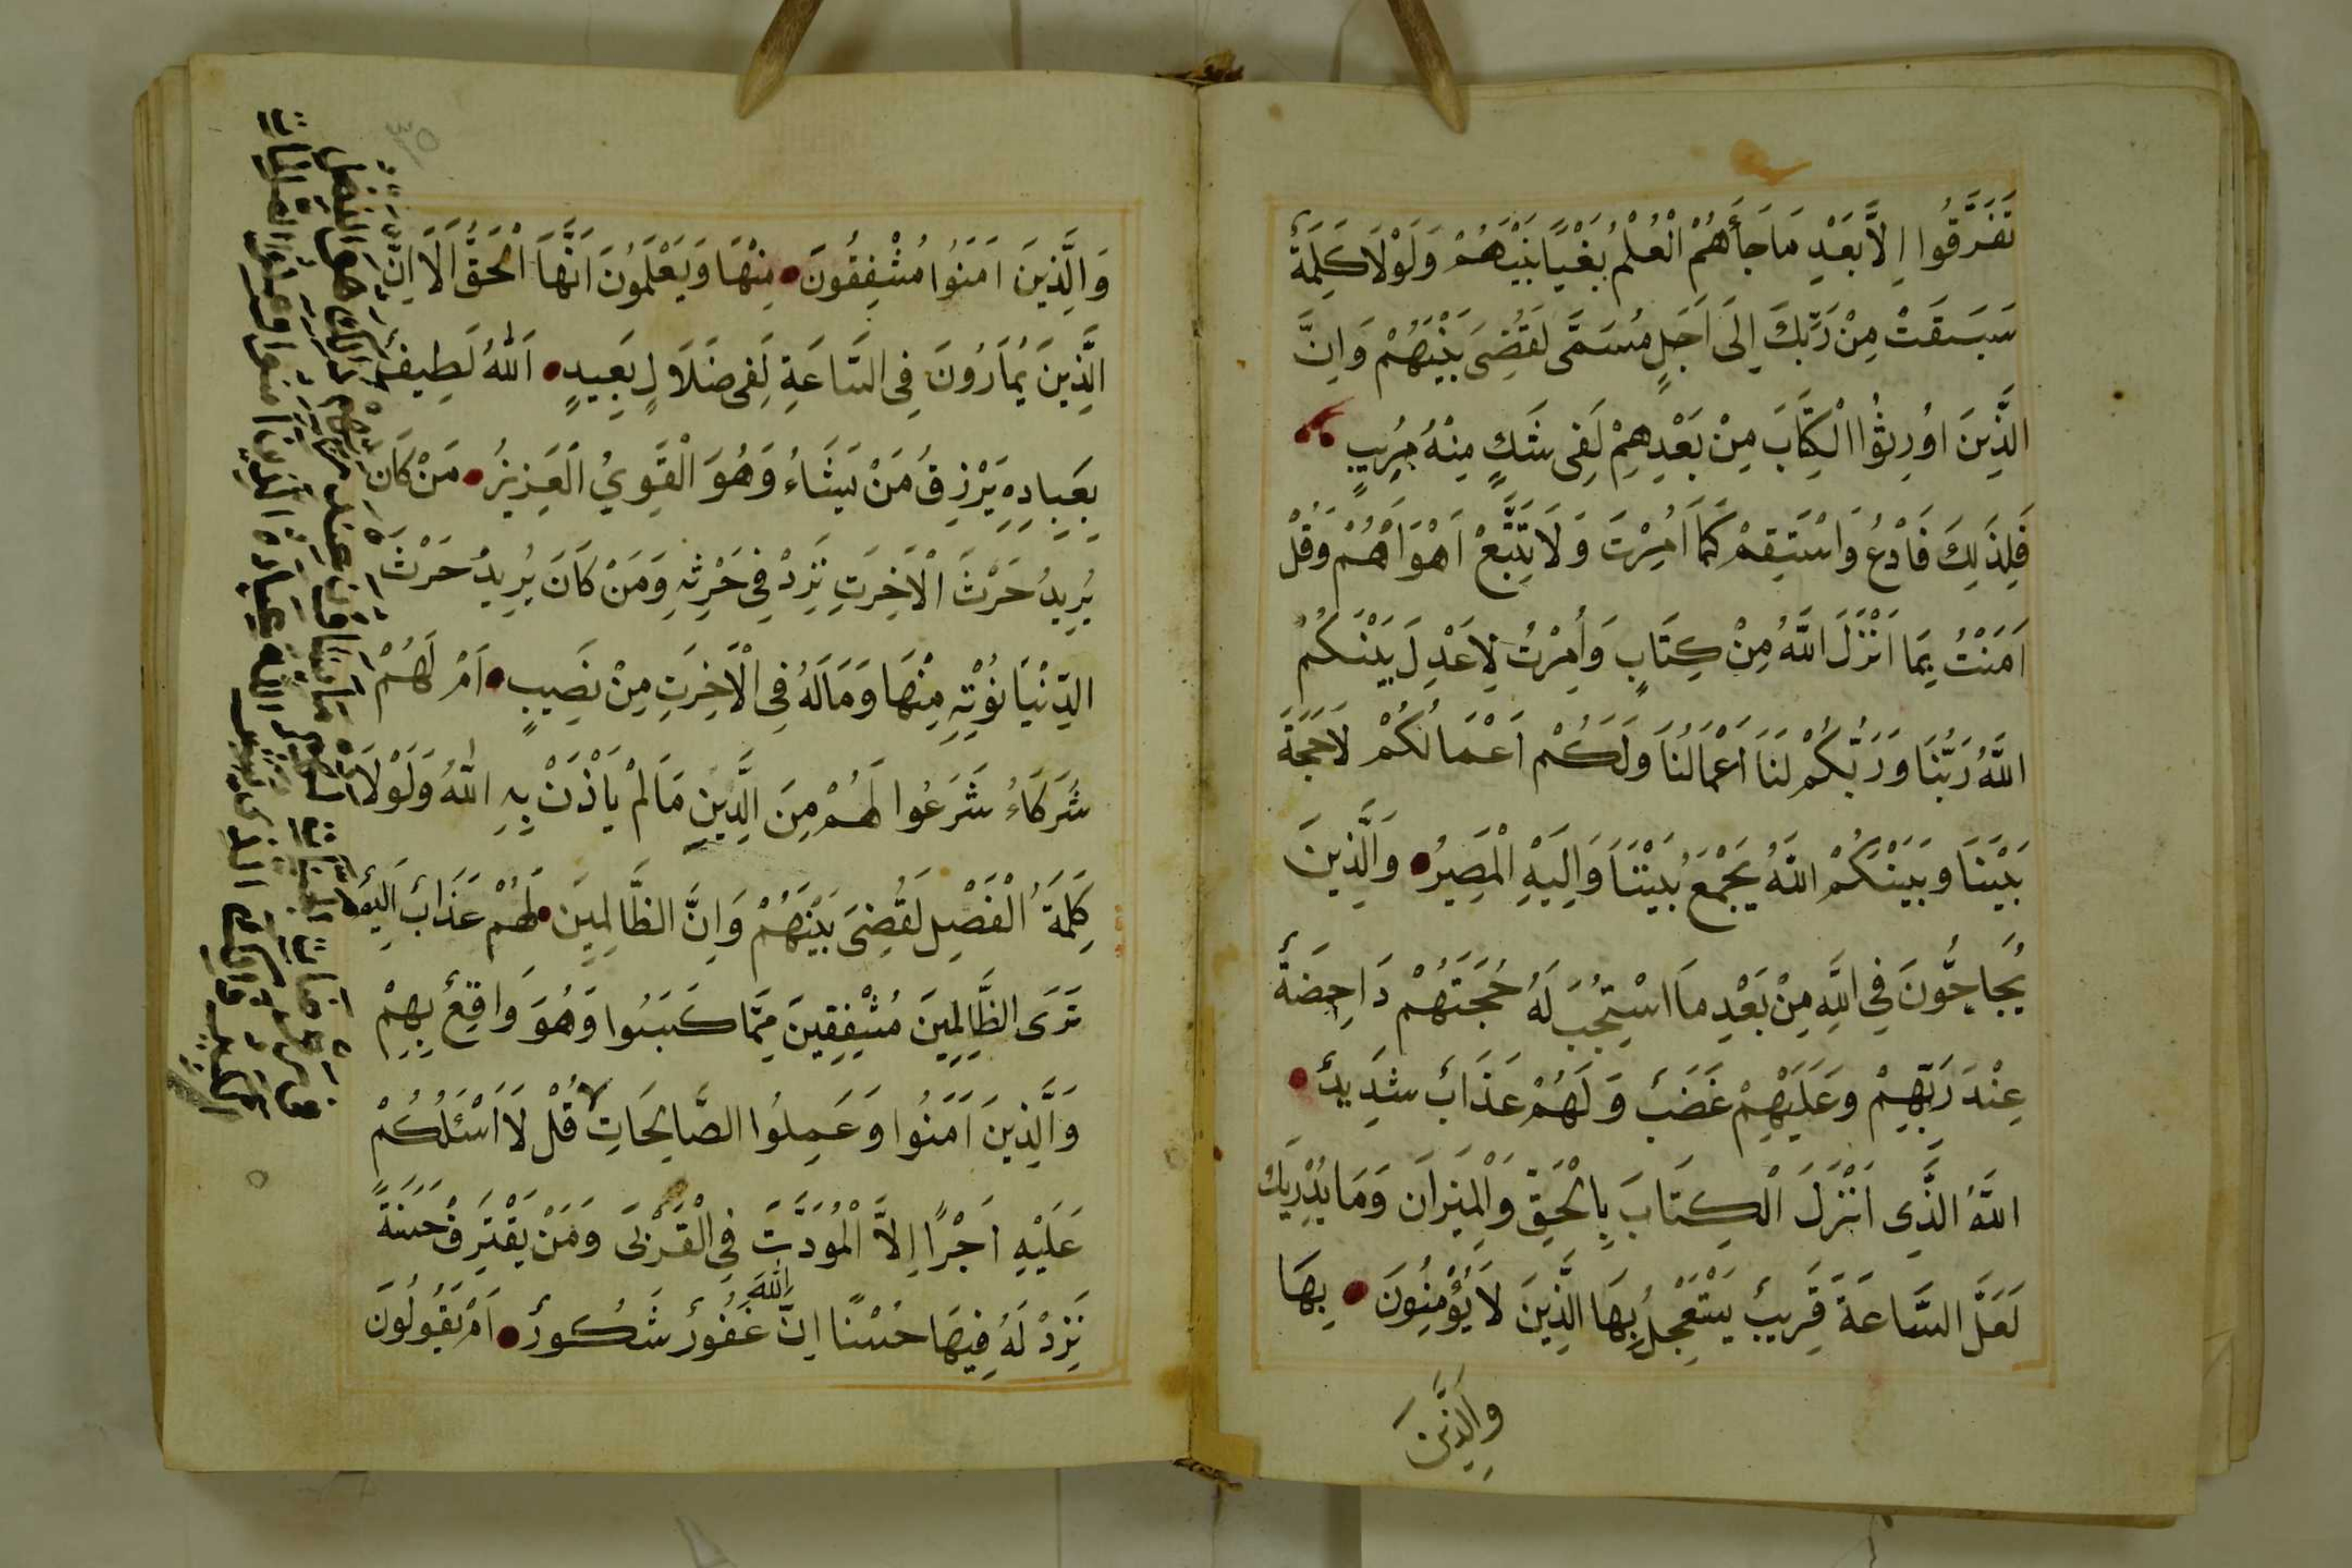 تَفَرَّقُوا اِلَّا بَعْدِ مَا جَأَهُمْ الْعُلْمُ بُغْيًا بَيْنَهُمْ وَلَوْلَا كَلِمَةٌ
سَبَسَقَتْ مِنْ رَبِّكَ اِلَى اَجَلٍ مُسَمًّى لَقُضِىَ بَيْنَهُمْ وَاِنَّ
الَّذِينَ اوُرِثُوا الْكِتَابَ مِنْ بَعْدِهِمْ لَفِى شَكٍ مِنْهُ مُرِيبٍ
فَلِذَلِكَ فَادْعُ وَاسْتَقِمْ كَمَا اُمِرْتَ وَلَا تَتَّبِعْ اَهْوَاَهُمْ وَقُلْ
اَمَنْتُ بِمَا اَنْزَلَ اللَّهُ مِنْ كِتَابٍ وَأُمِرْتُ لِاَعْدِلَ بَيْنَكُمْ
اللَّهُ رَبُّنَا وَرَبُّكُمْ لَنَا اَعْمَالُنَا وَلَكُمْ اَعْمَالُكُمْ لَا حُجَّةَ
بَيْنَنَا وَبَيْنَكُمْ اللَّهُ يَجْمَعُ بَيْنَنَا وَاِلَيْهِ الْمَصِيرُ وَالَّذِينَ
يُحَاجُّونَ فِي اللَّهِ مِنْ بَعْدِ مَا اسْتُجِبَ لَهُ حُجَّتُهُمْ دَاحِضَةٌ
عِنْدَ رَبِّهِمْ وَعَلَيْهِمْ غَضَبٌ وَلَهُمْ عَذَابٌ شَدِيدٌ
اللَّهُ الَّذِى اَنْزَلَ الْكِتَابَ بِالْحَقِّ وَالْمِيزَان وَمَا يُدْرِيكَ
لَعَلَّ السَّاعَةَ قَرِيبٌ يَسْتَعْجِلُ بِهَا الَّذِينَ لَا يُؤْمِنُونَ بِهَا
وَالَّذِينَ
٣٥
وَالَّذِينَ اَمَنُوا مُشْفِقُونَ مِنْهَا وَيَعْلَمُونَ اَنَّهَا الْحَقُّ اَلَا اِنَّ
الَّذِينَ يُمَارُونَ فِى السَّاعَةِ لَفِى ضَلَالٍ بَعِيدٍ اَللّٰهُ لَطِيفٌ
بِعِبِادِهِ يَرْزِقُ مَنْ يَشَاءُ وَهُوَ الْقَوِيُ الْعَزِيزُ مَنْ كَانَ
يُرِيدُ حَرْثَ الْاَخِرَتِ نَزِدْ فِى حَرْثِهِ وَمَنْ كَانَ يُرِيدُ حَرْثَ
الدِّنْيَا نُؤْتِهِ مِنْهَا وَمَالَهُ فِى الْاَخِرَتِ مِنْ نَصِيبٍ اَمْ لَهُمْ
شُرَكَاءُ شَرَعُوا لَهُمْ مِنَ الدِّينِ مَا لَمْ يَاْذَنْ بِهِ اللّٰهُ وَلَوْلَا
كَلِمَةُ الْفَصْلِ لَقُضِىَ بَيْنَهُمْ وَاِنَّ الظَّالِمِينَ لَهُمْ عَذَابٌ اَلِيمٌ
تَرَى الظَّالِمِينَ مُشْفِقِينَ مِمَّا كَسَبَُوا وَهُوَ وَاقِعٌ بِهِمْ
وَالَّذِينَ اَمَنُوا وَعَمِلُوا الصَّالِحَاتِ لا قُلْ لَا اَسْئَلُكُمْ
عَلَيْهِ اَجْرًا اِلَّا الْمُوَدَّتَ فِى الْقُرْبَى وَمَنْ يَقْتَرِفُ حَسَنَةً
نَزِدْ لَهُ فِيهَا حُسْنًا اِنَّ اللّٰهَ غَفُورٌ شَكُورٌ اَمْ يَقُولُونَ